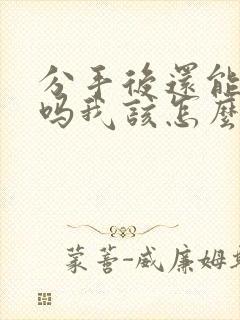 分手後還能
吗我該怎麼
蒙蒼-威廉姆